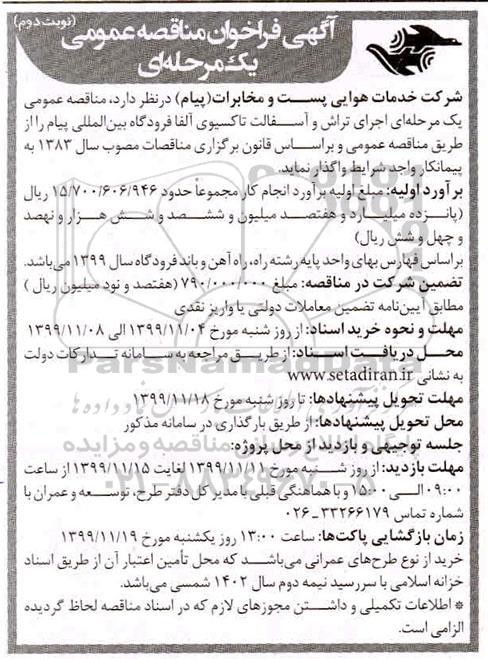 (نوبت دوم)
آگهی فراخوان مناقصه عمومی
یک مرحله‌ای
شرکت خدمات هوایی پست و مخابرات (پیام) درنظر دارد، مناقصه عمومی
یک مرحله‌ای اجرای تراش و آسفالت تاکسیوی آلفا فرودگاه بین‌المللی پیام را از
طریق مناقصه عمومی و براساس قانون برگزاری مناقصات مصوب سال ۱۳۸۳ به
پیمانکار واجد شرایط واگذار نماید.
برآورد اولیه: مبلغ اولیه برآورد انجام کار مجموعاً حدود ۱۵/۷۰۰/۶۰۶/۹۴۶ ریال
(پانزده میلیارد و هفتصد میلیون و ششصد و شش هزار و نهصد
و چهل و شش ریال)
براساس فهارس بهای واحد پایه رشته راه، راه آهن و باند فرودگاه سال ۱۳۹۹ می‌باشد.
تضمین شرکت در مناقصه: مبلغ ۷۹۰/۰۰۰/۰۰۰ (هفتصد و نود میلیون ریال )
مطابق آیین‌نامه تضمین معاملات دولتی یا واریز نقدی
مهلت و نحوه خرید اسناد: از روز شنبه مورخ ۱۳۹۹/۱۱/۰۴ الی ۱۳۹۹/۱۱/۰۸
محل دریافت اسناد: از طریق مراجعه به سامانه تدارکات دولت
به نشانی www.setadiran.ir
مهلت تحویل پیشنهادها: تا روز شنبه مورخ ۱۳۹۹/۱۱/۱۸
محل تحویل پیشنهادها: از طریق بارگذاری در سامانه مذکور
جلسه توجیهی و بازدید از محل پروژه:
مهلت بازدید: از روز شنبه مورخ ۱۳۹۹/۱۱/۱۱ لغایت ۱۳۹۹/۱۱/۱۵ از ساعت
۰۹:۰۰ الی ۱۵:۰۰ و با هماهنگی قبلی با مدیر کل دفتر طرح، توسعه و عمران با
شماره تماس ۳۳۲۶۶۱۷۹-۰۲۶
زمان بازگشایی پاکت‌ها: ساعت ۱۳:۰۰ روز یکشنبه مورخ ۱۳۹۹/۱۱/۱۹
خرید از نوع طرح‌های عمرانی می‌باشد که محل تأمین اعتبار آن از طریق اسناد
خزانه اسلامی با سررسید نیمه دوم سال ۱۴۰۲ شمسی می‌باشد.
* اطلاعات تکمیلی و داشتن مجوزهای لازم که در اسناد مناقصه لحاظ گردیده
الزامی است.
ParsNamadData
پایگاه اطلاع رسانی مناقصه و مزایده
۰۲۱-۸۸۳۴۹۶۷۰-۵